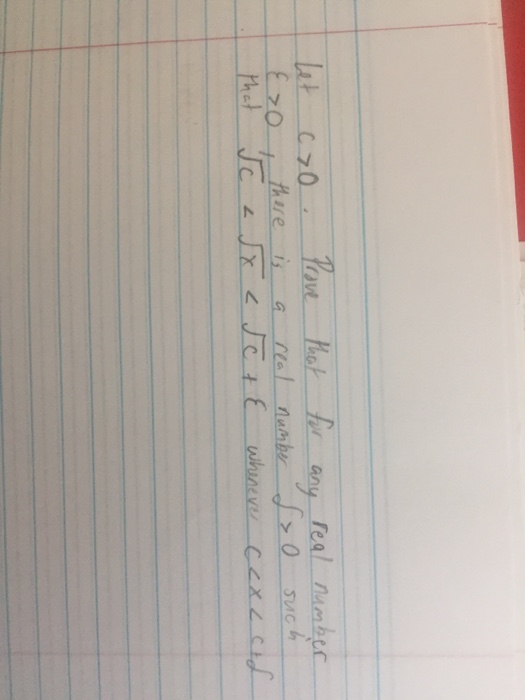 Let c > 0. Prove that for any real number
ε > 0, there is a real number δ > 0 such
that √c < √x < √c + ε whenever c < x < c + δ